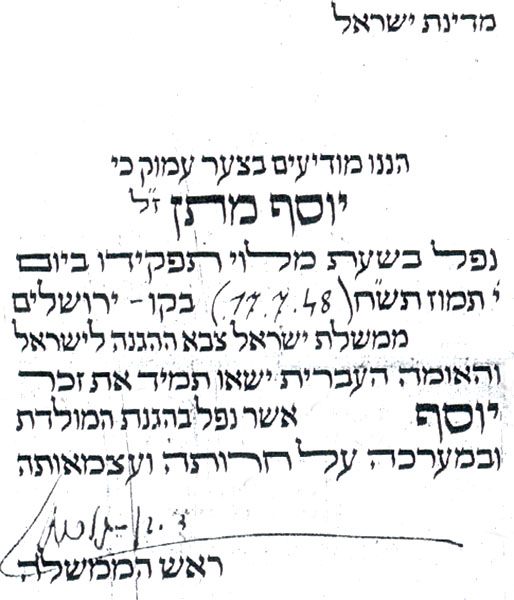 מדינת ישראל
הננו מודיעים בצער עמוק כי
יוסף מתן ז״ל
נפל בשעת מלוי תפקידו ביום
י׳ תמוז תש״ח (17.7.48) בקו - ירושלים
ממשלת ישראל צבא ההגנה לישראל
והאומה העברית ישאו תמיד את זכר
יוסף אשר נפל בהגנת המולדת
ובמערכה על חרותה ועצמאותה
ד. בן-גוריון
ראש הממשלה